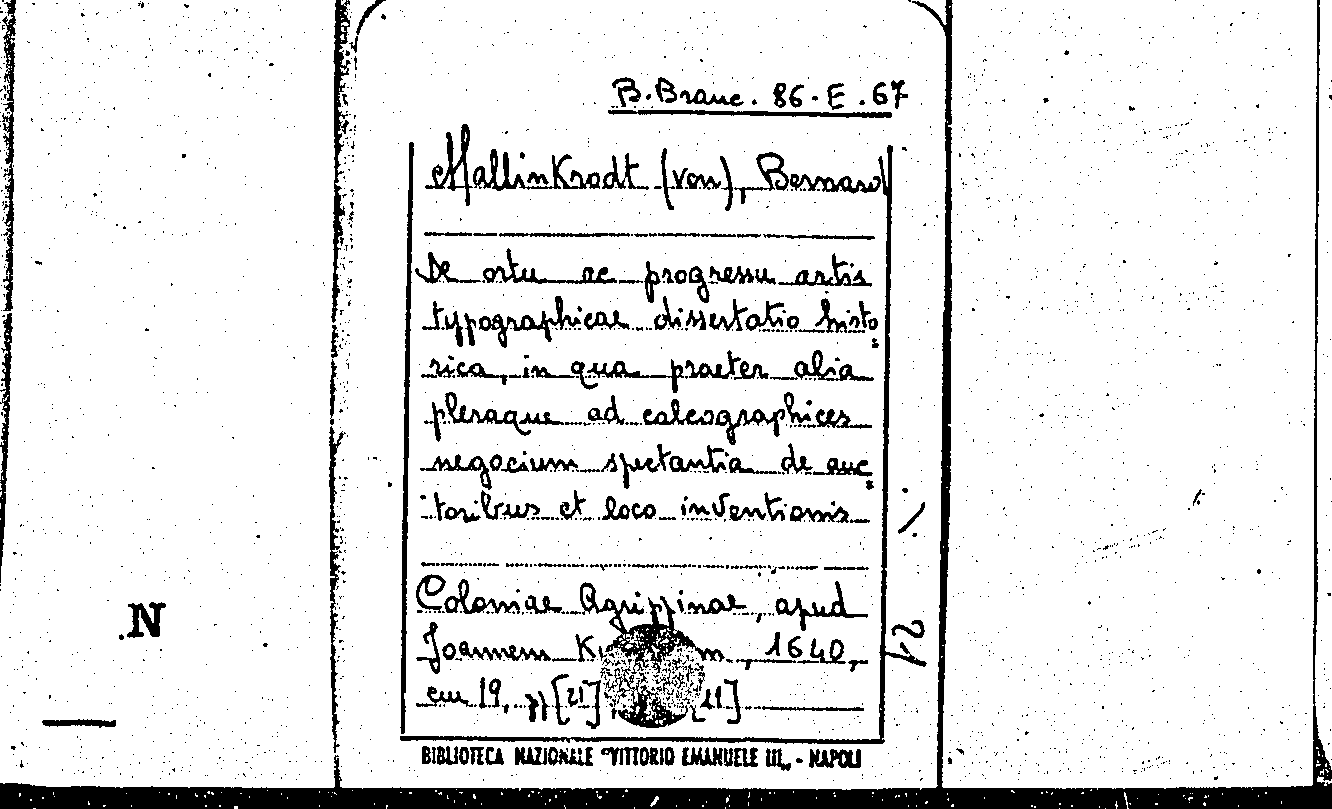 B. Branc. 86. E. 67
Mallinkrodt (von), Bernard
De ortu ac progressu artis
typographicae dissertatio histo
rica, in qua praeter alia
pleraque ad calcographices
negocium spectantia de auc
toribus et loco inventionis
Coloniae Agrippinae, apud
Joannem , 1640,
cm 19, pp [21] [11]
BIBLIOTECA NAZIONALE "VITTORIO EMANUELE III" - NAPOLI
N